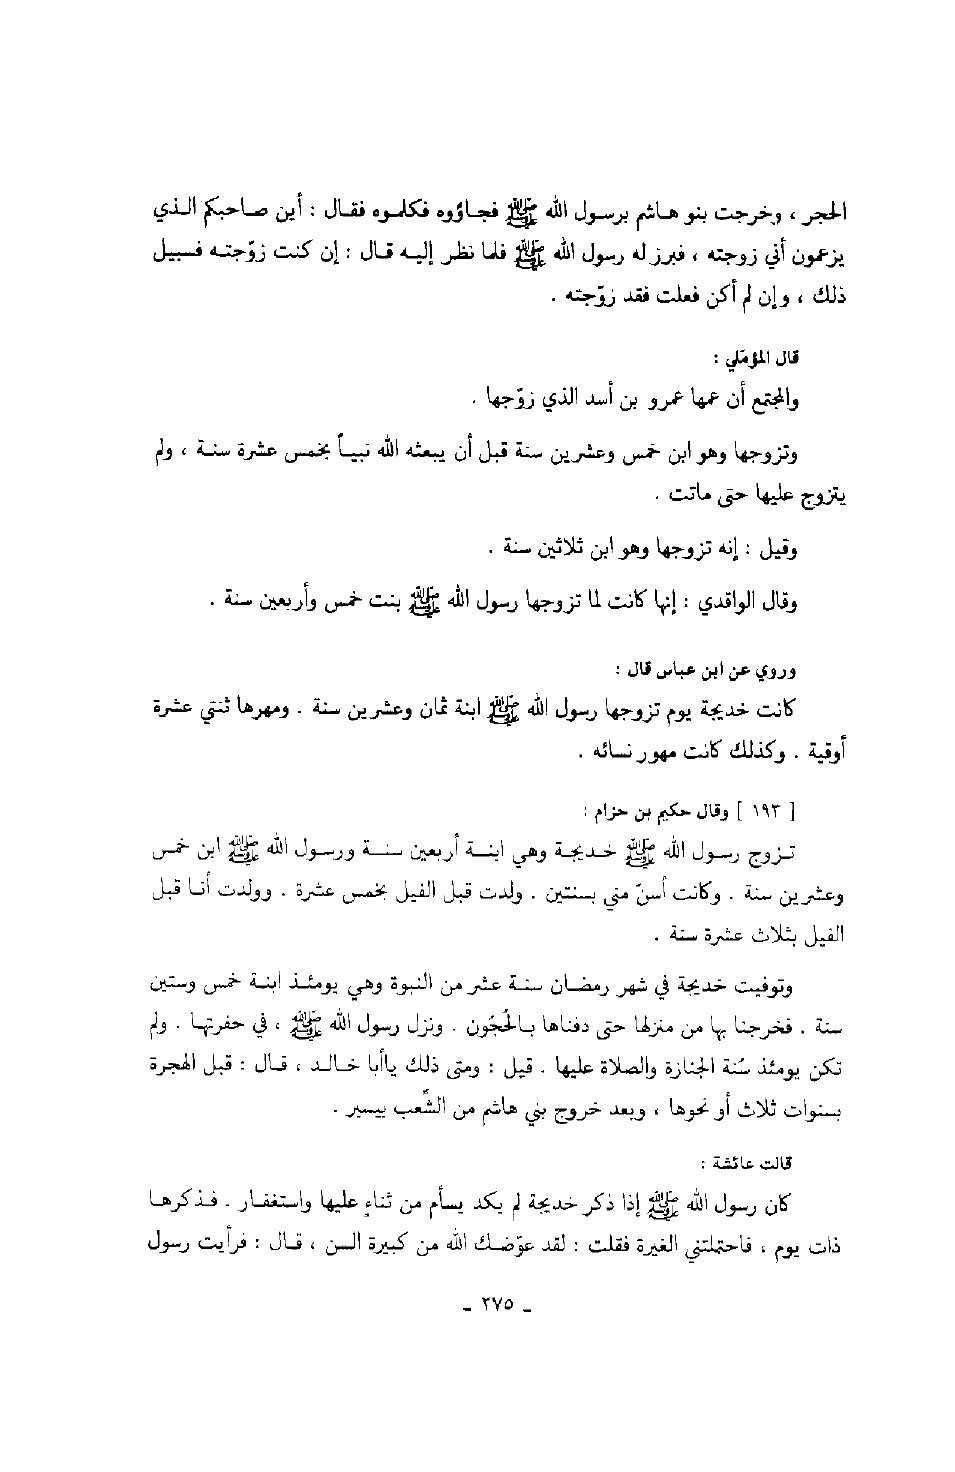 الحجر ، وخرجت بنو هاشم برسول الله ﷺ فجاؤوه فكلموه فقال : أين صاحبكم الذي
يزعمون أني زوجته ، فبرز له رسول الله ﷺ فلما نظر إليه قال : إن كنت زوّجته فسبيل
ذلك ، وإن لم أكن فعلت فقد زوّجته .
قال المؤمّلي :
والمجتمع أن عمها عمرو بن أسد الذي زوّجها .
وتزوجها وهو ابن خمس وعشرين سنة قبل أن يبعثه الله نبياً بخمس عشرة سنة ، ولم
يتزوج عليها حتى ماتت .
وقيل : إنه تزوجها وهو ابن ثلاثين سنة .
وقال الواقدي : إنها كانت لما تزوجها رسول الله ﷺ بنت خمس وأربعين سنة .
وروي عن ابن عباس قال :
كانت خديجة يوم تزوجها رسول الله ﷺ ابنة ثمان وعشرين سنة . ومهرها ثنتي عشرة
أوقية . وكذلك كانت مهور نسائه .
[ ١٩٣ ] وقال حكيم بن حزام :
تزوج رسول الله ﷺ خديجة وهي ابنة أربعين سنة ورسول الله ﷺ ابن خمس
وعشرين سنة . وكانت أسنّ مني بسنتين . ولدت قبل الفيل بخمس عشرة . وولدت أنا قبل
الفيل بثلاث عشرة سنة .
وتوفيت خديجة في شهر رمضان سنة عشر من النبوة وهي يومئذ ابنة خمس وستين
سنة . فخرجنا بها من منزلها حتى دفناها بالحَجُون . ونزل رسول الله ﷺ ، في حفرتها . ولم
تكن يومئذ سُنة الجنازة والصلاة عليها . قيل : ومتى ذلك ياأبا خالد ، قال : قبل الهجرة
بسنوات ثلاث أو نحوها ، وبعد خروج بني هاشم من الشِّعب بيسير .
قالت عائشة :
كان رسول الله ﷺ إذا ذكر خديجة لم يكد يسأم من ثناءٍ عليها واستغفار . فذكرها
ذات يوم ، فاحتملتني الغيرة فقلت : لقد عوّضك الله من كبيرة السن ، قال : فرأيت رسول
ـ ٢٧٥ ـ